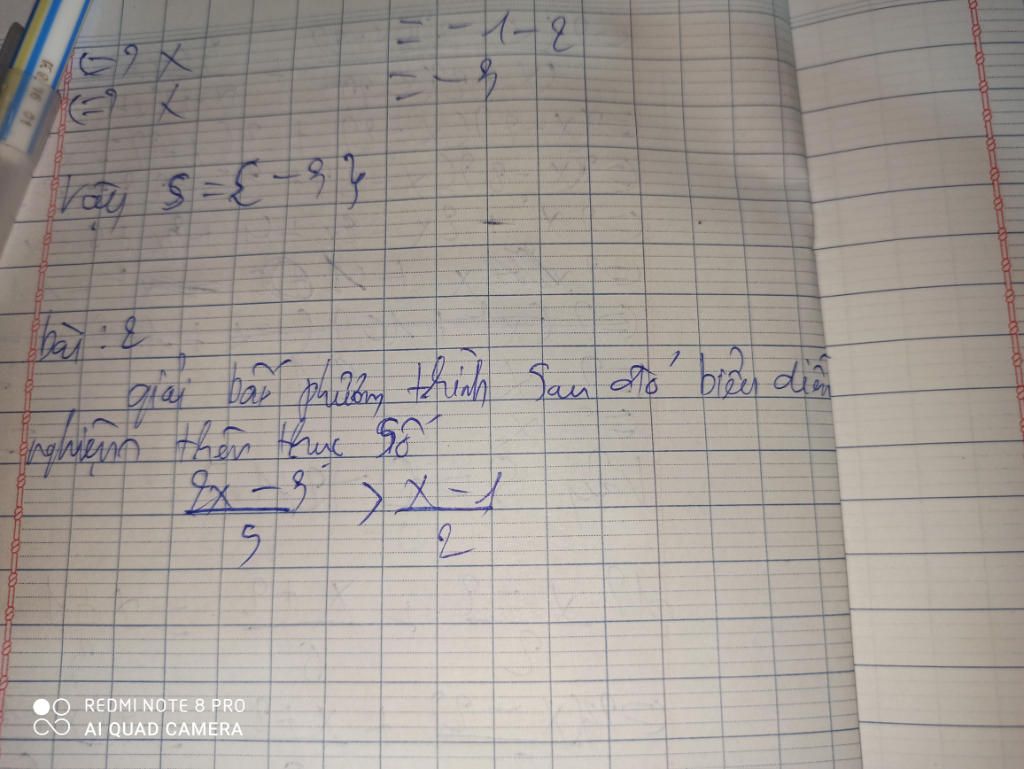 <=> x = -1-2
<=> x = -3
Vậy S = {-3}
bài : 2
giải bất phương thình sau đó biểu diễn
nghiệm thên thục số
2x - 3 > x - 1
5 2
REDMI NOTE 8 PRO
AI QUAD CAMERA